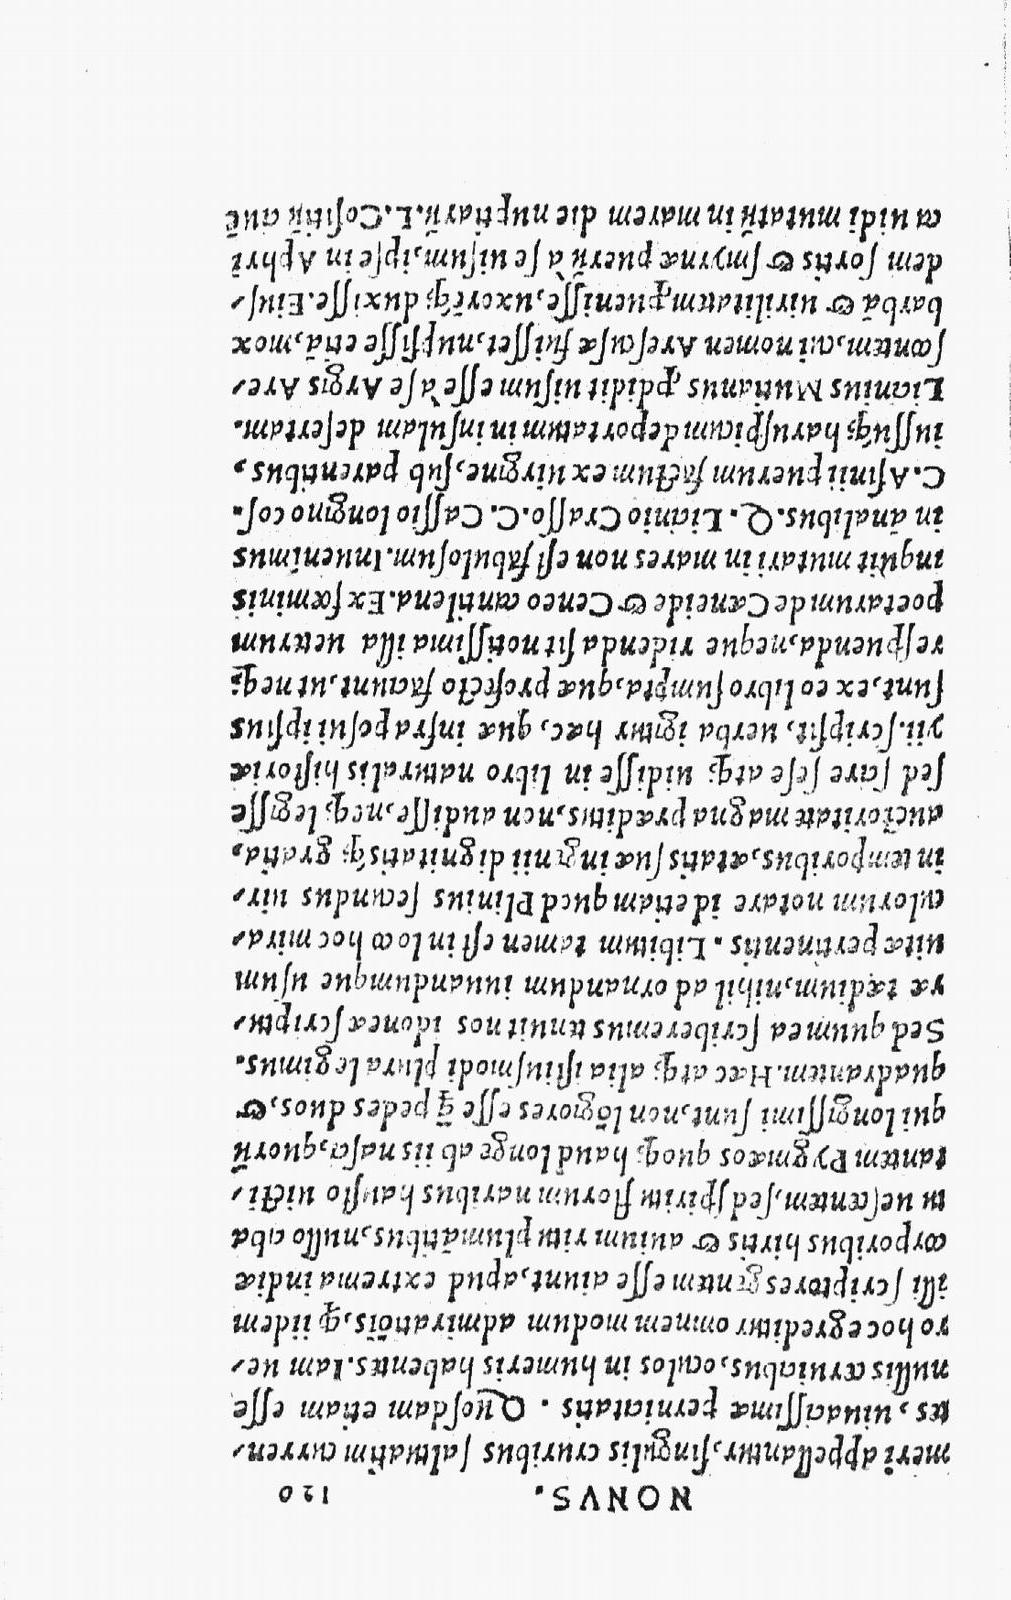 NONVS. 120
meri appellantur, singulis cruribus saltuatim curren-
tes, uiuacissimæ pernicitatis. Quosdam etiam esse
nullis ceruicibus, oculos in humeris habentes. Iam ue-
ro hoc egreditur omnem modum admiratiõis, ꝙ iidem
illi scriptores gentem esse aiunt, apud extrema indiæ
corporibus hirtis & auium ritu plumãtibus, nullo ciba
tu uescentem, sed spiritu florum naribus hausto uicti-
tantem Pygmæos quoq; haud longe ab iis nasci, quorũ
qui longissimi sunt, non lõgiores esse ꝙ̃ pedes duos, &
quadrantem. Hæc atq; alia istiusmodi plura legimus.
Sed quum ea scriberemus tenuit nos idoneæ scriptu-
ræ tædium, nihil ad ornandum iuuandumque usum
uitæ pertinentis. Libitum tamen est in loco hoc mira-
culorum notare id etiam quod Plinius secundus uir,
in temporibus, ætatis suæ ingenii dignitatis q; gratia,
auctoritate magna præditus, non audisse, neq; legisse
sed scire sese atq; uidisse in libro naturalis historiæ
vii. scripsit, uerba igitur hæc, quæ infra posui ipsius
sunt, ex eo libro sumpta, quæ profecto faciunt, ut neq;
respuenda, neque ridenda sit notissima illa ueterum
poetarum de Cæneide & Ceneo cantilena. Ex fœminis
inquit mutari in mares non est fabulosum. Inuenimus
in ãnalibus. Q. Licinio Crasso. C. Cassio longino cos.
C. Asinii puerum factum ex uirgine, sub parentibus,
iussuq; haruspicum deportatum in insulam desertam.
Licinius Mutianus ꝓdidit uisum esse a se Argis Are-
scontem, cui nomen Arescusæ fuisset, nupsisse etiã, mox
barbã & uirilitatem ꝓuenisse, uxorẽq; duxisse. Eius-
dem sortis & smyrnæ puerũ à se uisum, ipse in Aphri
ca uidi mutatũ in marem die nuptiarũ. L. Cositiũ ciuẽ